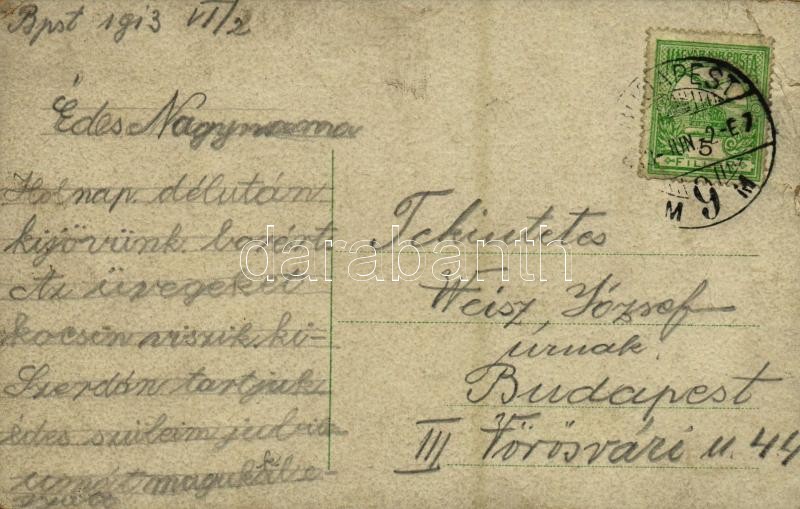 Bpst 1913 VI/2
Édes Nagymama
Holnap délután
kijövünk. bo
Az üvegeket
kocsin viszik ki-
Szerdán tartjuk
édes szüleim
maguk
MAGYAR KIR. POSTA
5
FILLÉR
BUDAPEST
JUN. 2-E7
M 9 M
Tekintetes
Weisz József
úrnak
Budapest
III Vörösvári u. 44
darabanth